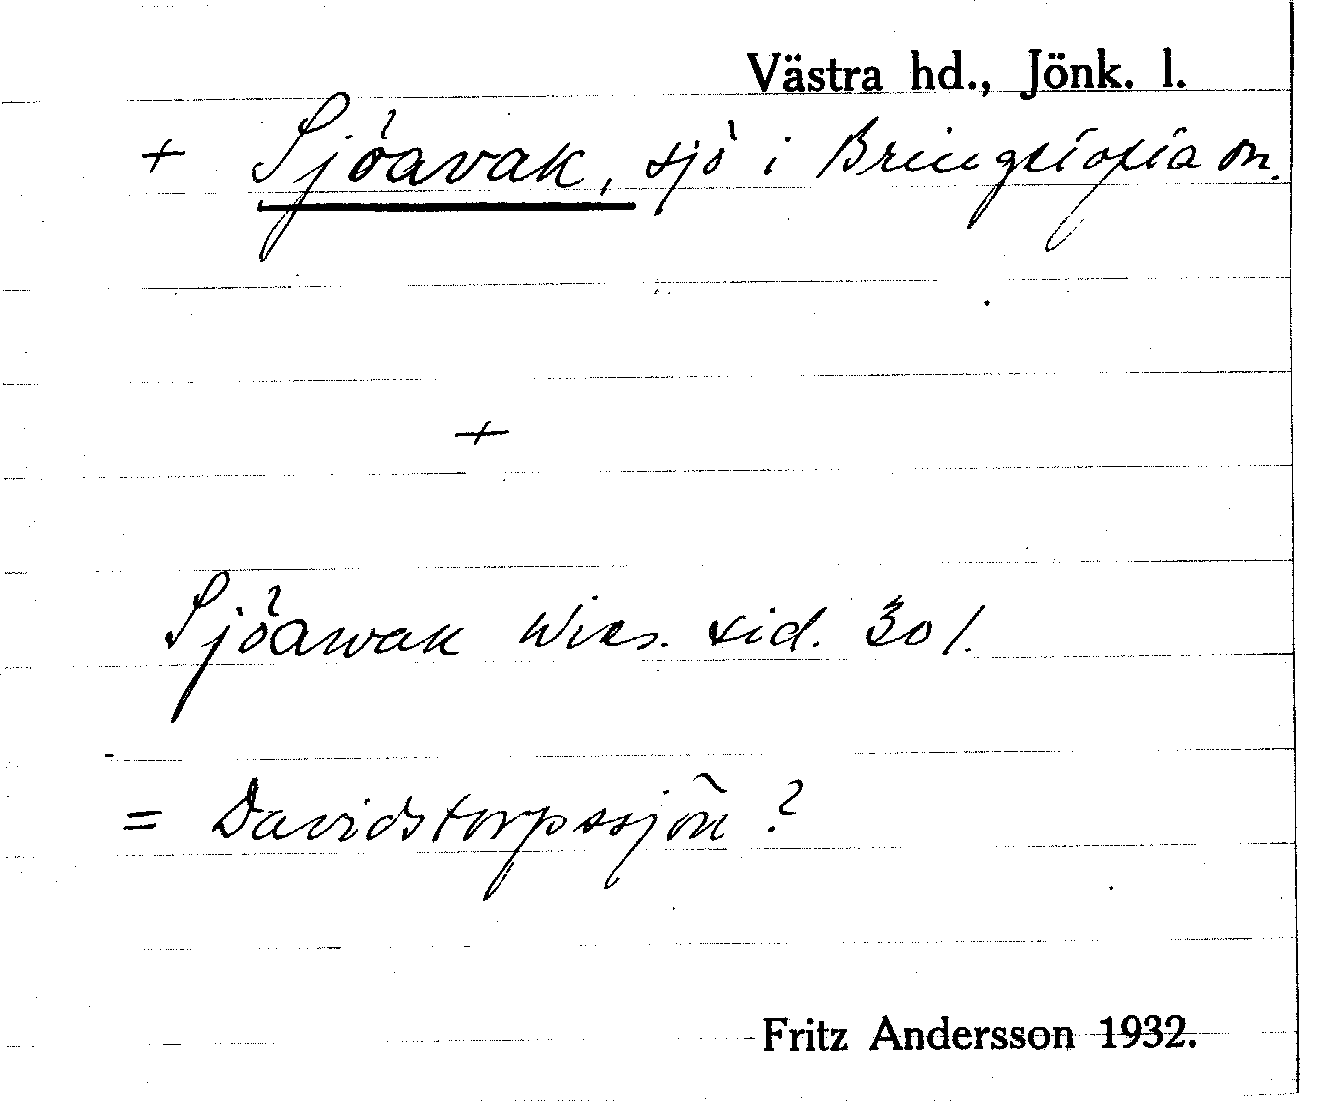 Västra hd., Jönk. l.
+ Sjöavak, sjö i Bringetofta sn.
+
Sjöawak Wies. sid. 301.
= Davidstorpssjön ?
Fritz Andersson 1932.